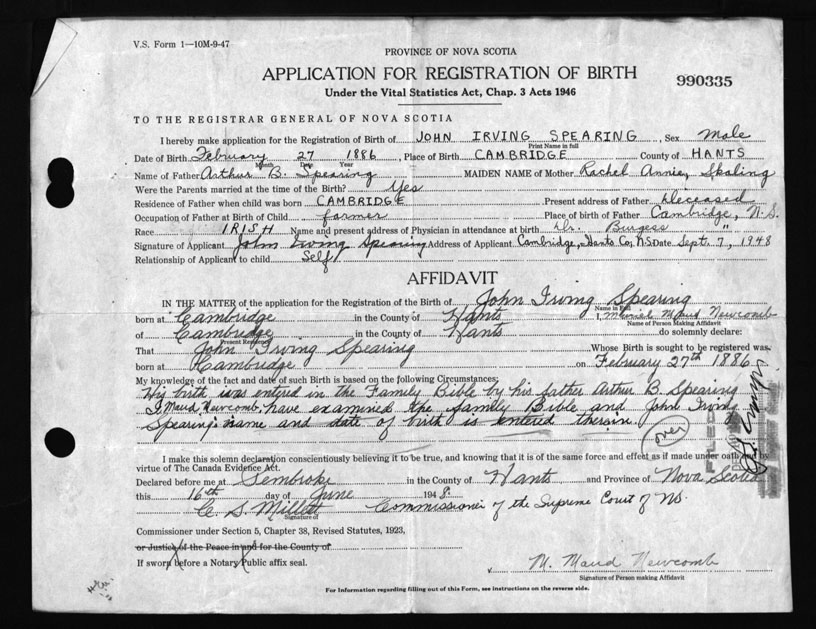 V.S. Form 1—10M-9-47
PROVINCE OF NOVA SCOTIA
APPLICATION FOR REGISTRATION OF BIRTH
990335
Under the Vital Statistics Act, Chap. 3 Acts 1946
TO THE REGISTRAR GENERAL OF NOVA SCOTIA
I hereby make application for the Registration of Birth of JOHN IRVING SPEARING, Sex Male
Print Name in full
Date of Birth February 27 1886, Place of Birth CAMBRIDGE County of HANTS
Month Date Year
Name of Father Arthur B. Spearing MAIDEN NAME of Mother Rachel Annie, Skaling
Were the Parents married at the time of the Birth? Yes
Residence of Father when child was born CAMBRIDGE Present address of Father Deceased
Occupation of Father at Birth of Child farmer Place of birth of Father Cambridge, N.S.
Race IRISH Name and present address of Physician in attendance at birth Dr. Burgess "
Signature of Applicant John Irving Spearing Address of Applicant Cambridge, Hants Co, N.S. Date Sept. 7, 1948
Relationship of Applicant to child Self
AFFIDAVIT
IN THE MATTER of the application for the Registration of the Birth of John Irving Spearing
Name in Full
born at Cambridge in the County of Hants I, Muriel Maud Newcomb
Name of Person Making Affidavit
of Cambridge in the County of Hants do solemnly declare:
Present Residence
That John Irving Spearing Whose Birth is sought to be registered was
born at Cambridge on February 27th 1886
My knowledge of the fact and date of such Birth is based on the following Circumstances:
His birth was entered in the Family Bible by his father Arthur B. Spearing
I, Maud Newcomb, have examined the family Bible and John Irving
Spearing's name and date of birth is entered therein.
(over)
FILED
I make this solemn declaration conscientiously believing it to be true, and knowing that it is of the same force and effect as if made under oath and by
virtue of The Canada Evidence Act.
Declared before me at Pembroke in the County of Hants and Province of Nova Scotia
this 16th day of June 1948.
C. S. Millett Commissioner of the Supreme Court of NS.
Signature of
Commissioner under Section 5, Chapter 38, Revised Statutes, 1923,
or Justice of the Peace in and for the County of
If sworn before a Notary Public affix seal.
M. Maud Newcomb
Signature of Person making Affidavit
For Information regarding filling out of this Form, see instructions on the reverse side.